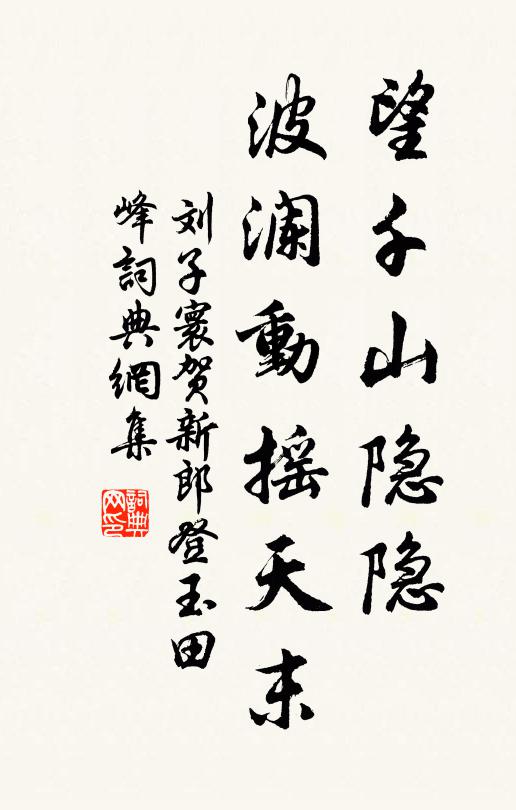 望千山隐隐
波澜動摇天末
刘子寰贺新郎登玉田
峰詞典網集
詞典网印